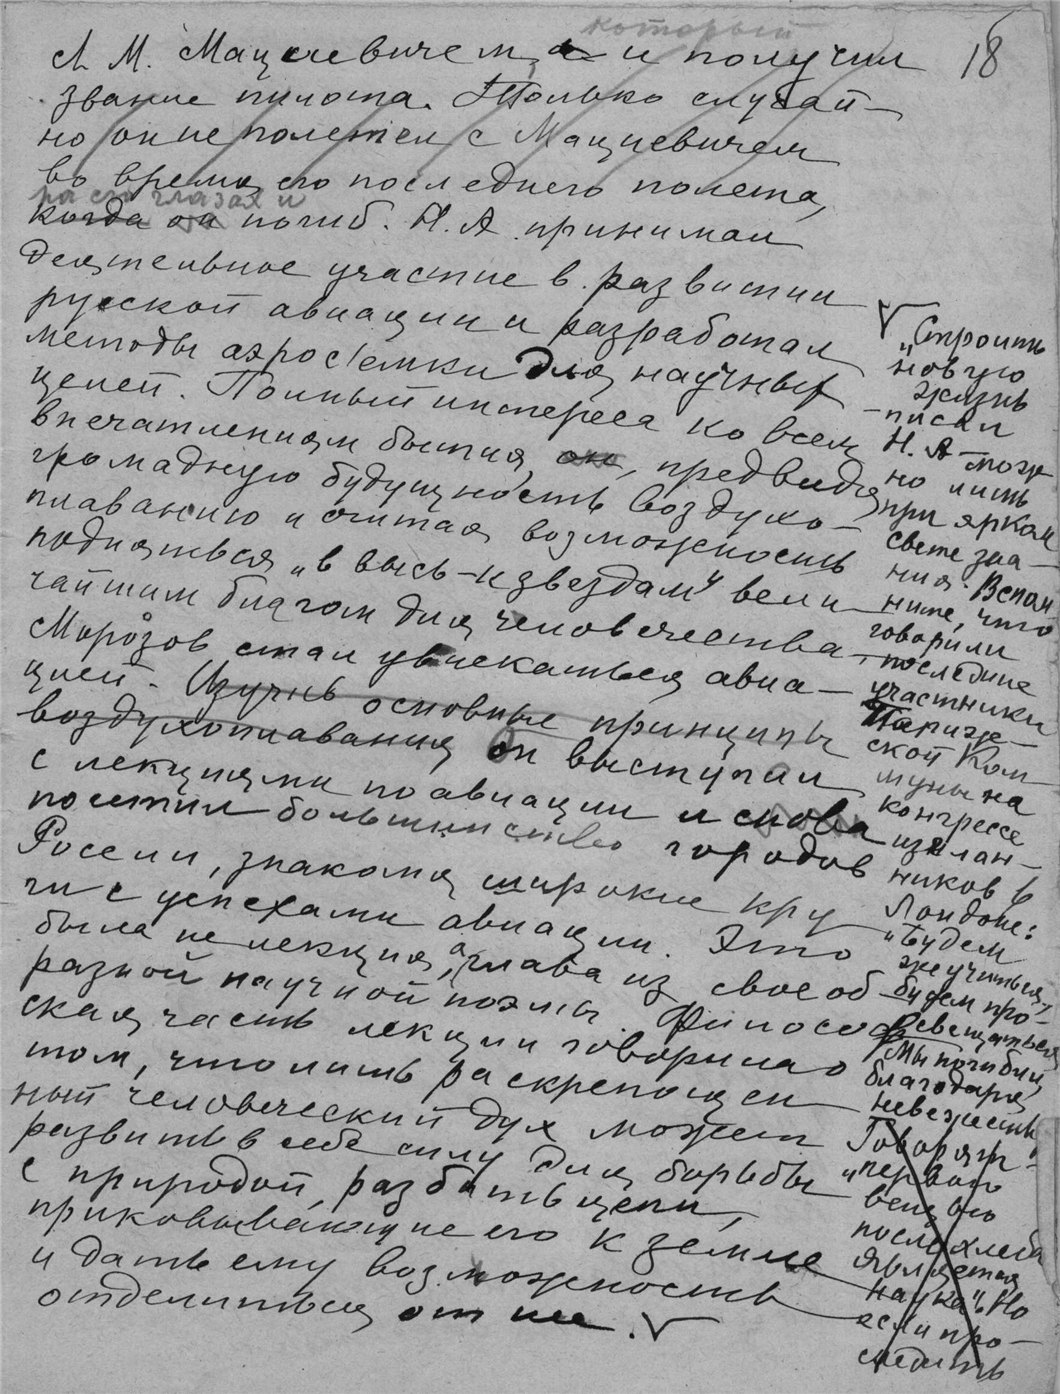 который
Л. М. Мациевичем, и получил
18
звание пилота. Только случай-
но он не полетел с Мациевичем
во время его последнего полета,
глазах и
когда он погиб. Н. А. принимал
деятельное участие в развитии
русской авиации и разработал
методы аэросъемки для научных
целей. Полный интереса ко всем
впечатлениям бытия, предвидя
громадную будущность воздухо-
плаванию и считая возможность
подняться „в высь - к звездам" вели-
чайшим благом для человечества,
Морозов стал увлекаться авиа-
цией. Изучив основные принципы
воздухоплавания, он выступал
с лекциями по авиации и снова
посетил большинство городов
России, знакомя широкие кру-
ги с успехами авиации. Это
была не лекция, а глава из своеоб-
разной научной поэмы. Философ-
ская часть лекции говорила о
том, что лишь раскрепощен-
ный человеческий дух может
развить в себе силу для борьбы
с природой, разбить цепи,
приковывающие его к земле
и дать ему возможность
отделиться от нее.
„Строить
новую
жизнь
- писал
Н. А. - мож-
но лишь
при ярком
свете зна-
ния. Вспом-
ните, что
говорили
последние
участники
Париж-
ской Ком-
муны на
конгрессе
изгнан-
ников в
Лондоне:
„Будем
же учиться,
будем про-
свещаться
Мы погибли
благодаря
невежеству
Говорят -
„первою
вещью
после хлеба
является
наука". Но
если про-
следить